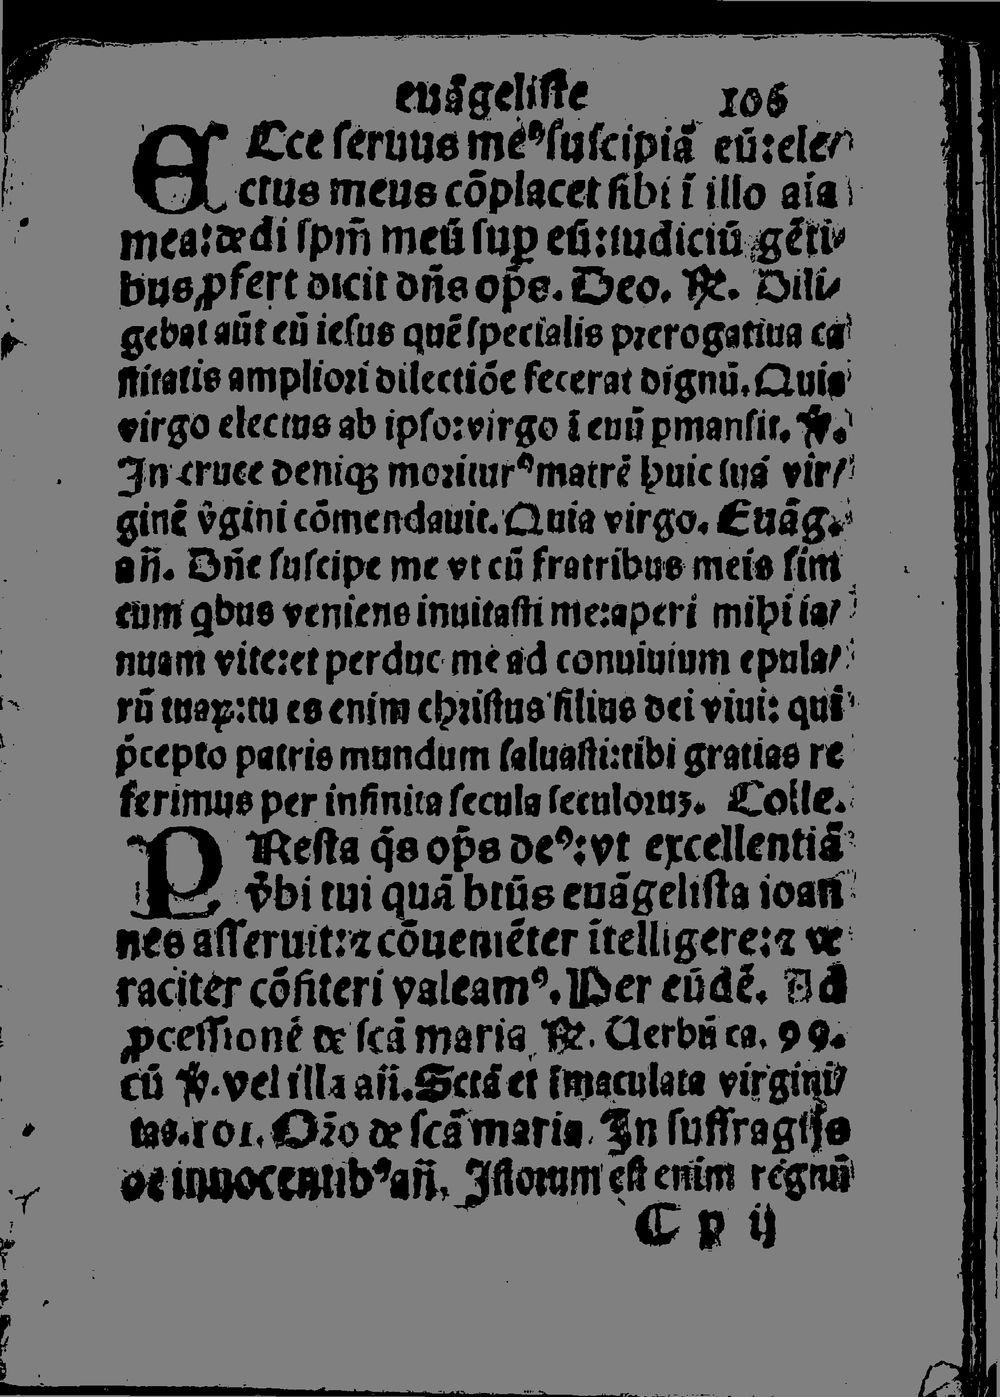 euāgeliſte 106
ECce ſeruus meꝰ ſuſcipiā eū: ele⸗
ctus meus cōplacet ſibi ī illo aīa
mea: dedi ſpm̄ meū ſuꝑ eū: iudiciū gēti⸗
bus ꝓfert dicit dn̄s op̄s. Deo. ℟. Dili⸗
gebat aūt eū ieſus quē ſpecialis prerogatiua ca
ſtitatis ampliori dilectiōe fecerat dignū. Quia
virgo electus ab ipſo: virgo ī euū ꝑmanſit. ℣.
In cruce deniqꝫ moriturꝰ matrē huic ſuā vir⸗
ginē v̄gini cōmendauit. Quia virgo. Euāg.
an̄. Dn̄e ſuſcipe me vt cū fratribus meis ſim
cum qbus veniens inuitaſti me: aperi mihi ia⸗
nuam vite: et perduc me ad conuiuium epula⸗
rū tuaꝝ: tu es enim chriſtus filius dei viui: qui
p̄cepto patris mundum ſaluaſti: tibi gratias re
ferimus per infinita ſecula ſeculoruꝫ. Colle.
PReſta q̄s op̄s deꝰ: vt excellentiā
v̄bi tui quā btūs euāgeliſta ioan
nes aſſeruit: ⁊ cōueniēter ītelligere: ⁊ ve
raciter cōfiteri valeamꝰ. Per eūdē. Ad
ꝓceſſionē de ſcā maria ℟. Uerbū ca. 99.
cū ℣. vel illa an̄. Sctā et īmaculata virgini⸗
tas. 101. Orō de ſcā maria. In ſuffragijs
de innocentibꝰ an̄. Iſtorum eſt enim regnū
C p ij